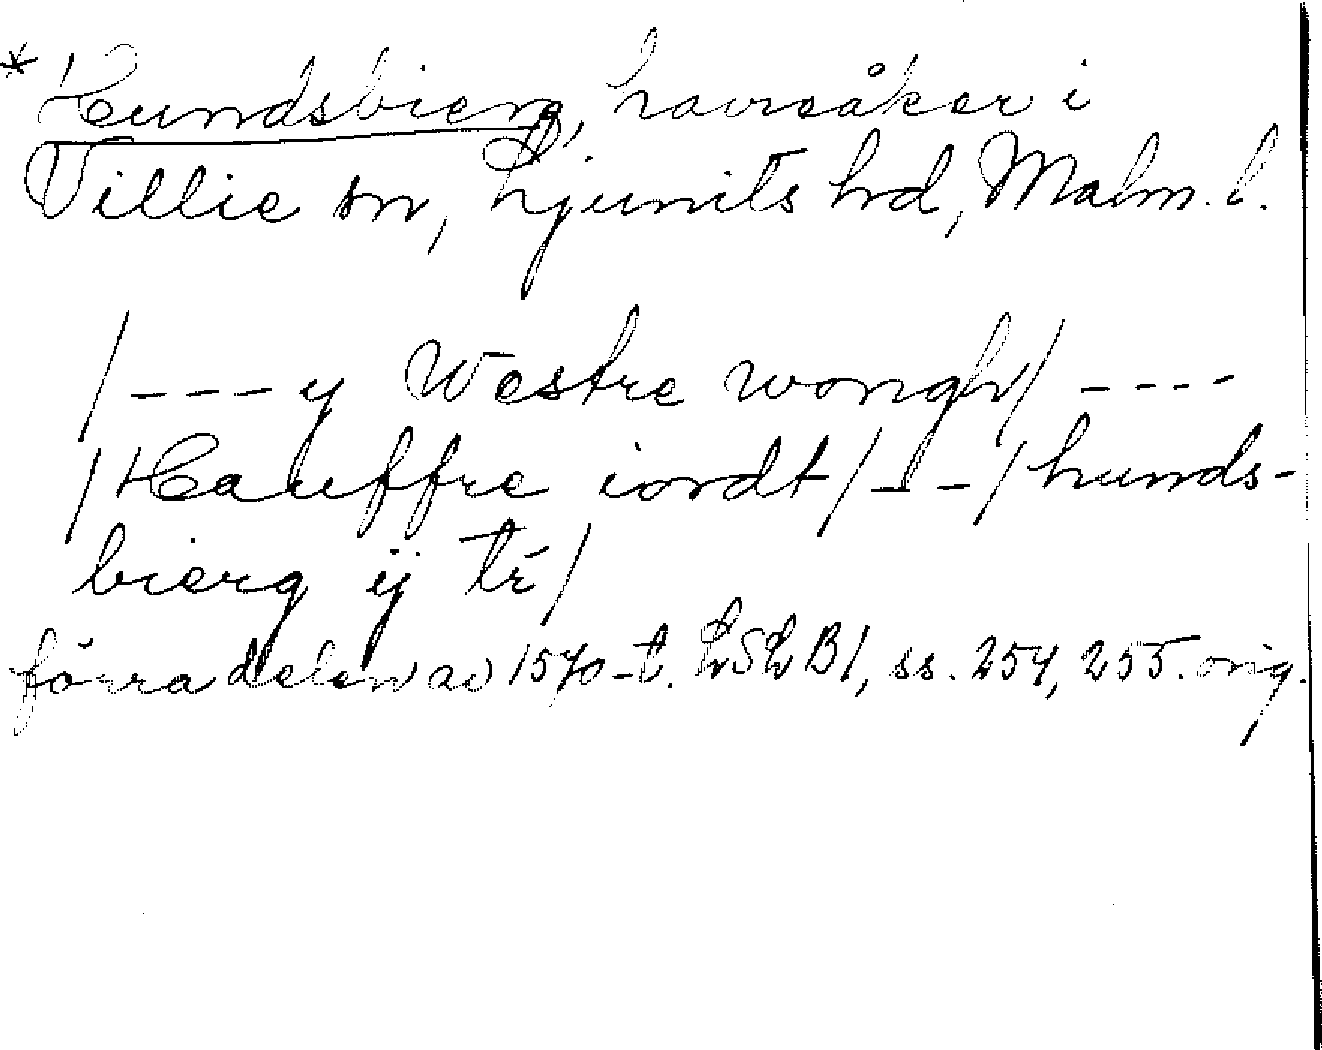 *Hundsbierg, havreåker i
Villie sn, Ljunits hd, Malm. l.
/---y Westre wongh/ ----
/Hauffre iordt/ _ _ _ /hunds-
bierg ij tr/
förra delen av 1570-t. LSLB1, ss. 254, 255. orig.